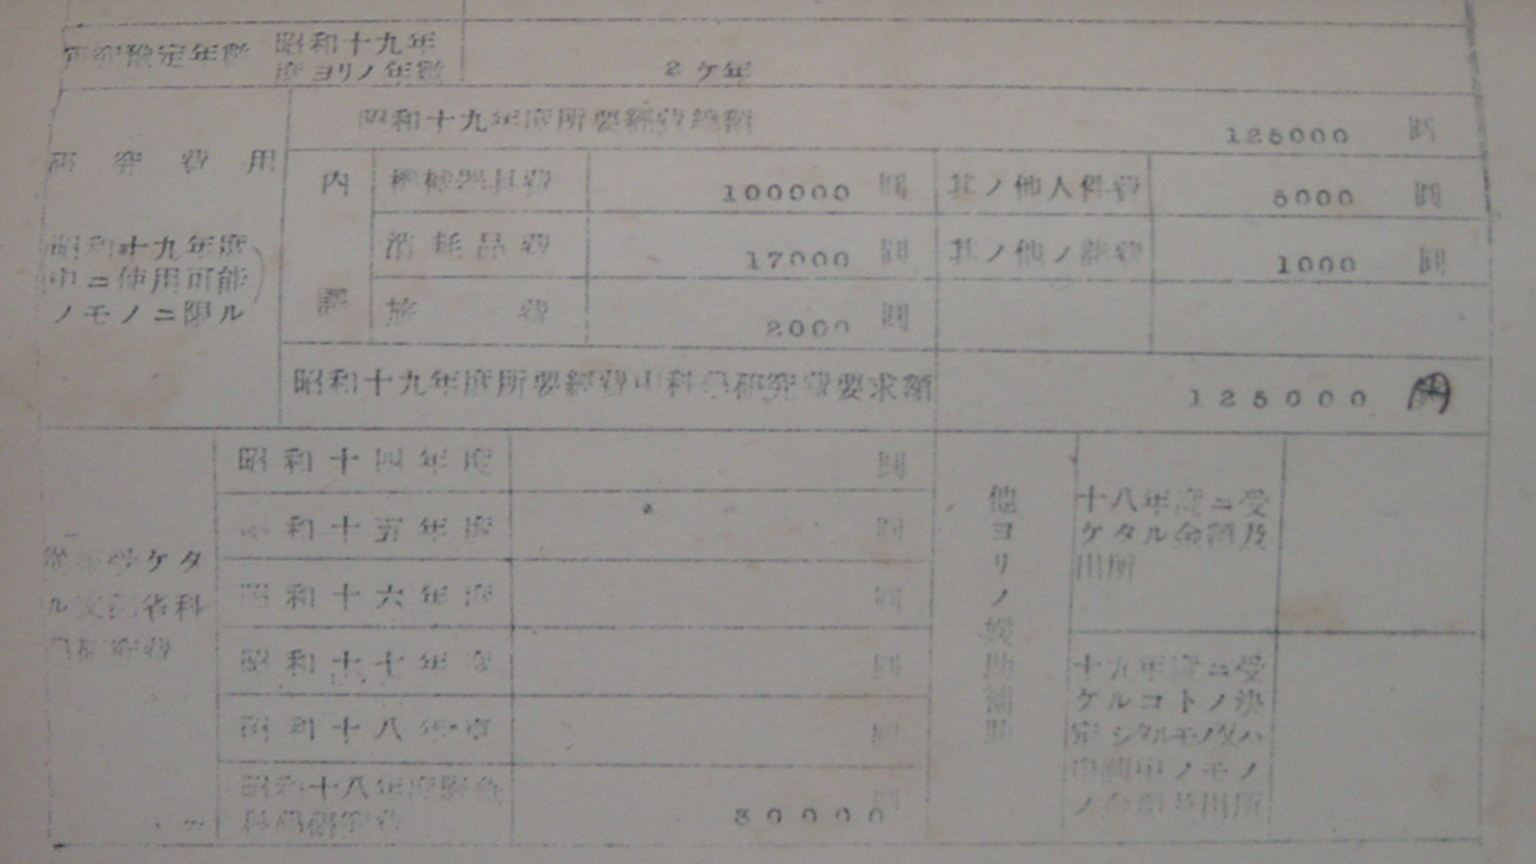 研究豫定年數 昭和十九年
度ヨリノ年數 2ケ年
研究費用
昭和十九年度
中ニ使用可能
ノモノニ限ル
昭和十九年度所要經費總額 125000 圓
內譯
機械器具費 100000 圓 其ノ他人件費 5000 圓
消耗品費 17000 圓 其ノ他ノ諸費 1000 圓
旅費 2000 圓
昭和十九年度所要經費中科學研究費要求額 125000 円
受ケタ
ル文部省科
學研究費
昭和十四年度 圓
昭和十五年度 圓
昭和十六年度 圓
昭和十七年度 圓
昭和十八年度 圓
昭和十八年度緊急
科學研究費 30000 圓
他ヨリノ援助補助
十八年度ニ受
ケタル金額及
出所
十九年度ニ受
ケルコトノ決
定シタルモノ又ハ
申請中ノモノ
ノ金額及出所